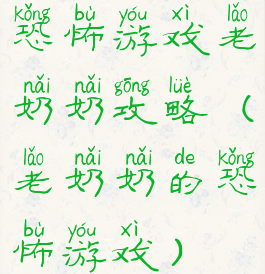 kǒng bù yóu xì lǎo
恐怖游戏老
nǎi nǎi gōng lüè
奶奶攻略（
lǎo nǎi nǎi de kǒng
老奶奶的恐
bù yóu xì
怖游戏）